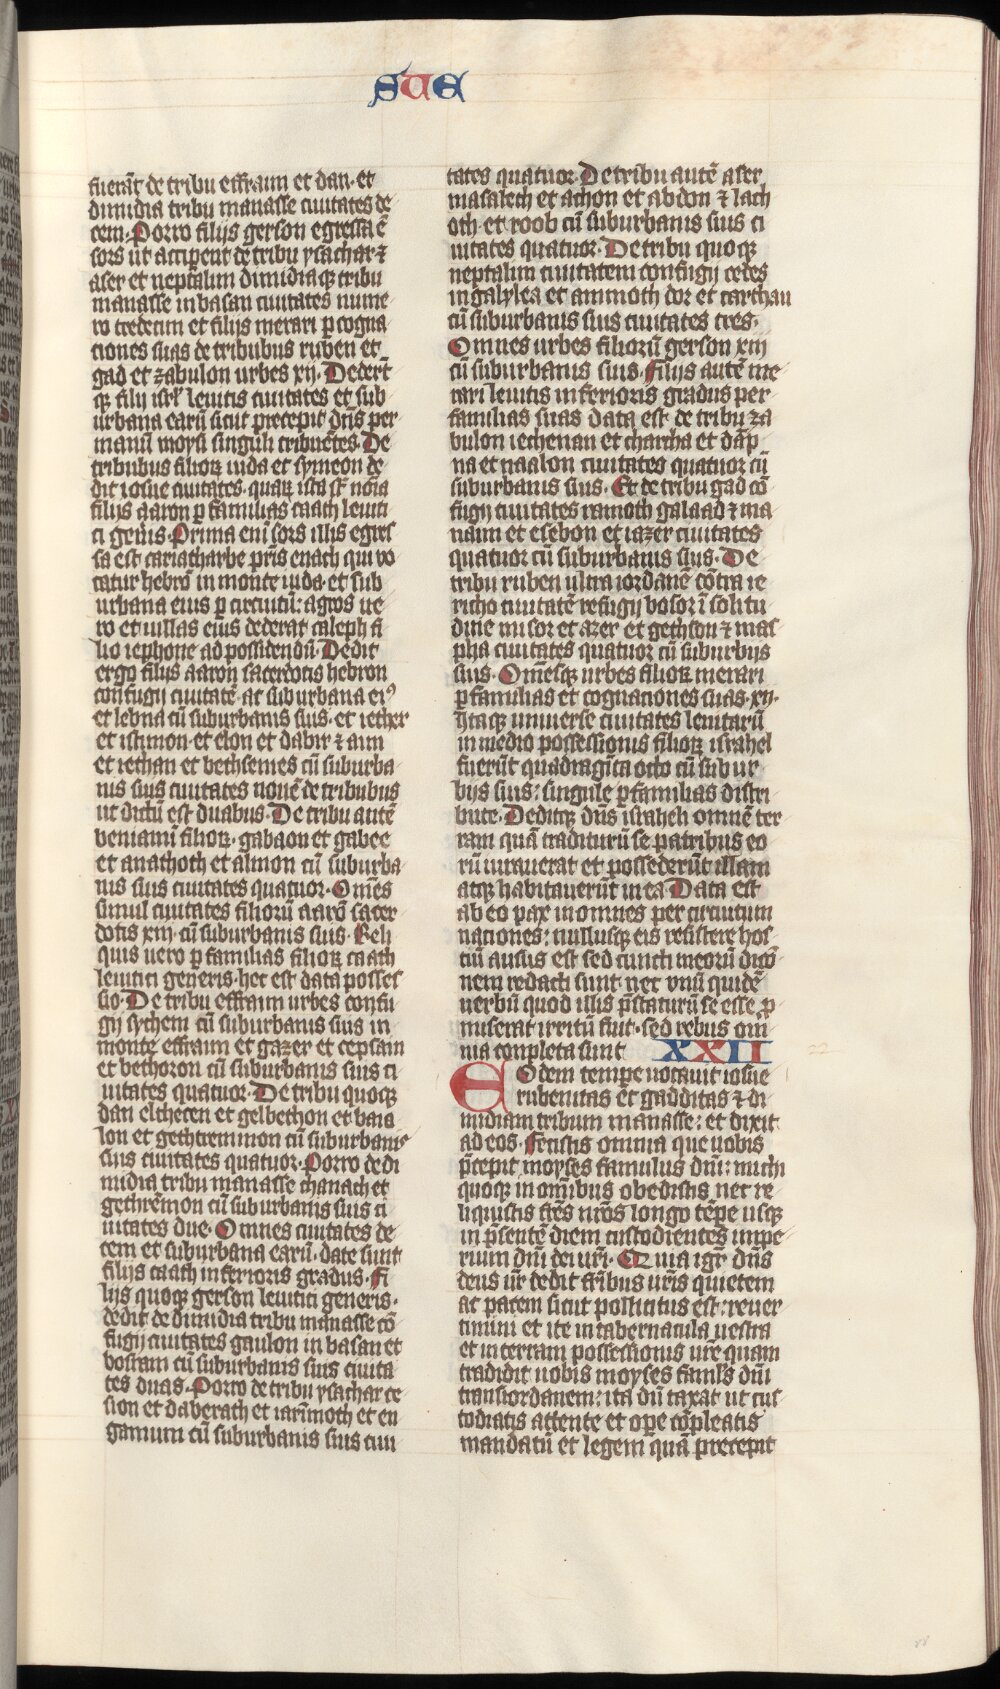 SUE
fuerāt de tribu effraim et dan· et
dimidia tribu manasse ciuitates de
cem· Porro filijs gerson egressa ē
sors ut acciperent de tribu ysachar ⁊
aser et neptalim dimidiaqꝫ tribu
manasse in basan ciuitates nume
ro tredecim et filijs merari p cogna
ciones suas de tribubus ruben et
gad et zabulon urbes xij· Dedert̄
qꝫ filij isrl̄ leuitis ciuitates et sub
urbana earū sicut precepit dn̄s per
manū moysi singuli tribuētes· De
tribubus filioꝝ iuda et symeon de
dit iosue ciuitates· quaꝝ ista st̄ noīa
filijs aaron p familias caath leuiti
ci gen̄is· Prima eni sors illis egres
sa est cariatharbe pr̄is enach qui vo
catur hebrō in monte iuda· et sub
urbana eius p circuitū: agros ue
ro et uillas eius dederat caleph fi
lio iephone ad possidendū· Dedit
ergo filijs aaron sacerdotis hebron
confugij ciuitatē· ac suburbana eiꝰ
et lebna cū suburbanis suis· et iether
et istimon· et elon et dabir ⁊ aim
et iethan et bethsemes cū suburba
nis suis ciuitates nouē de tribubus
ut dictū est duabus· De tribu autē
beniami filioꝝ· gabaon et gabee
et anathoth et almon cū suburba
nis suis ciuitates quatuor· Om̄es
simul ciuitates filiorū aarō sacer
dotis xiij· cū suburbanis suis· Reli
quis uero p familias filioꝝ caath
leuitici generis· hec est data posses
sio· De tribu effraim urbes confu
gij sychem cū suburbanis suis in
monte effraim et gazer et cepsaim
et bethoron cū suburbanis suis ci
uitates quatuor· De tribu quoqꝫ
dan eltheten et gelbethon et haia
lon et gethremmon cū suburbanis
suis ciuitates quatuor· Porro de di
midia tribu manasse thanach et
gethrēmon cū suburbanis suis ci
uitates due· Omnes ciuitates de
cem et suburbana earū· date sunt
filijs caath inferioris gradus· Fi
lijs quoqꝫ gerson leuitici generis·
dedit de dimidia tribu manasse cō
fugij ciuitates gaulon in basan et
bosram cū suburbanis suis ciuita
tes duas· Porro de tribu ysachar ce
sion et daberath et iarimoth et en
gannim cū suburbanis suis ciui
tates quatuor· De tribu autē aser
masalech et achon et abdon ⁊ lach
oth· et roob cū suburbanis suis ci
uitates quatuor· De tribu quoqꝫ
neptalim ciuitatem confugij cedes
in galylea et ammoth dor et carthan
cū suburbanis suis ciuitates tres·
Omnes urbes filiorū gerson xiij
cū suburbanis suis· Filijs autē me
rari leuitis inferioris gradus per
familias suas data est· de tribu za
bulon iechenan et chartha et dāp
na et naalon ciuitates quatuor cū
suburbanis suis· Et de tribu gad cō
fugij ciuitates ramoth galaad ⁊ ma
naim et esebon et iazer ciuitates
quatuor cū suburbanis suis· De
tribu ruben ultra iordanē cōtra ie
richo ciuitatē refugij bosor ī solitu
dine misor et azer et gethson ⁊ mas
pha ciuitates quatuor cū suburbijs
suis· Om̄esqꝫ urbes filioꝝ merari
p familias et cognaciones suas· xij·
Itaqꝫ uniuerse ciuitates leuitarū
in medio possessionis filioꝝ israhel
fuerūt quadragīta octo cū subur
bijs suis: singule p familias distri
bute· Deditqꝫ dn̄s israheli omnē ter
ram quā traditurū se patribus eo
rū iurauerat et possederūt illam
atqꝫ habitauerūt in ea Data est
ab eo pax in omnes per circuitum
naciones: nullusqꝫ eis resistere hos
tiū ausus est sed cuncti in eorū dicō
nem redacti sunt· nec vnū quidē
uerbū quod illis p̄staturū se esse p
miserat irritū fuit· sed rebus om̄
nia completa sunt XXII
22
Eodem tempe uocauit iosue
rubenitas et gadditas ⁊ di
midiam tribum manasse: et dixit
ad eos· Fecistis omnia que uobis
p̄cepit moyses famulus dn̄i: michi
quoqꝫ in om̄ibus obedistis nec re
liquistis fr̄es vr̄os longo tēpe usqꝫ
in p̄sentē diem custodientes impe
rium dn̄i dei vr̄i· Quia igr̄ dn̄s
deus vr̄ dedit fr̄ibus vr̄is quietem
ac pacem sicut pollicitus est: reuer
timini et ite in tabernacula uestra
et in terram possessionis vr̄e quam
tradidit uobis moyses faml̄s dn̄i
transiordanem: ita dū taxat ut cus
todiatis attente et ope cōpleatis
mandatū et legem quā precepit